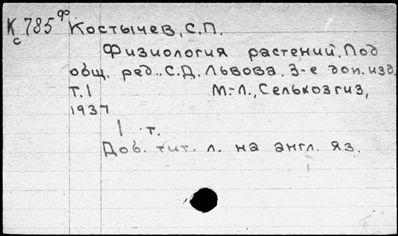 К 785ф Костычев, С.П.
с
Физиология растений. Под
общ. ред. С.Д. Львова. 3-е доп. изд.
Т.1 М.-Л., Селькозгиз,
1937
1 т.
Доб. тит. л. на англ. яз.